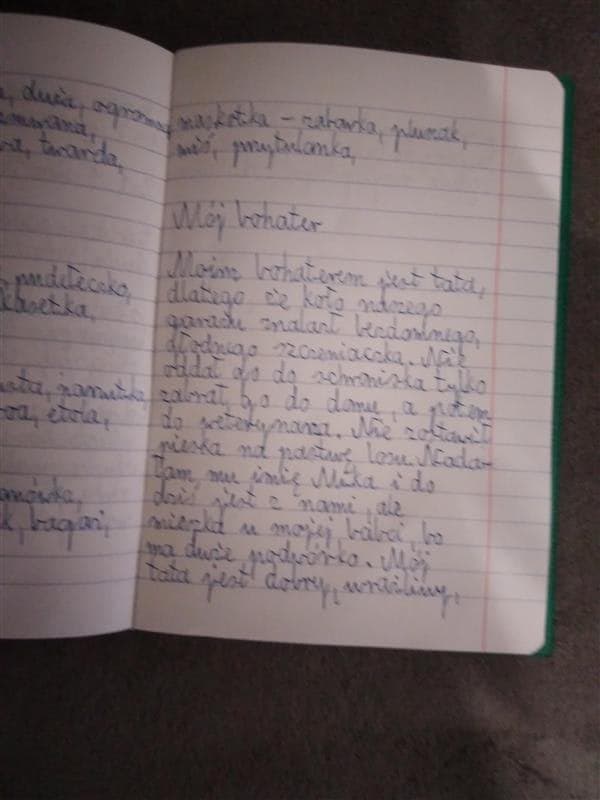 duża, ogromna,
va, twarda,
pudełeczko,
kasetka,
etola,
bagaż,
maskotka – zabawka, pluszak,
miś, przytulanka,
Mój bohater
Moim bohaterem jest tata,
dlatego, że koło naszego
garażu znalazł bezdomnego,
głodnego szczeniaczka. Nie
oddał go do schroniska tylko
zabrał go do domu, a potem
do weterynarza. Nie zostawił
pieska na pastwę losu. Nada-
łam mu imię Mika i do
dziś jest z nami, ale
mieszka u mojej babci, bo
ma duże podwórko. Mój
tata jest dobry, wrażliwy,